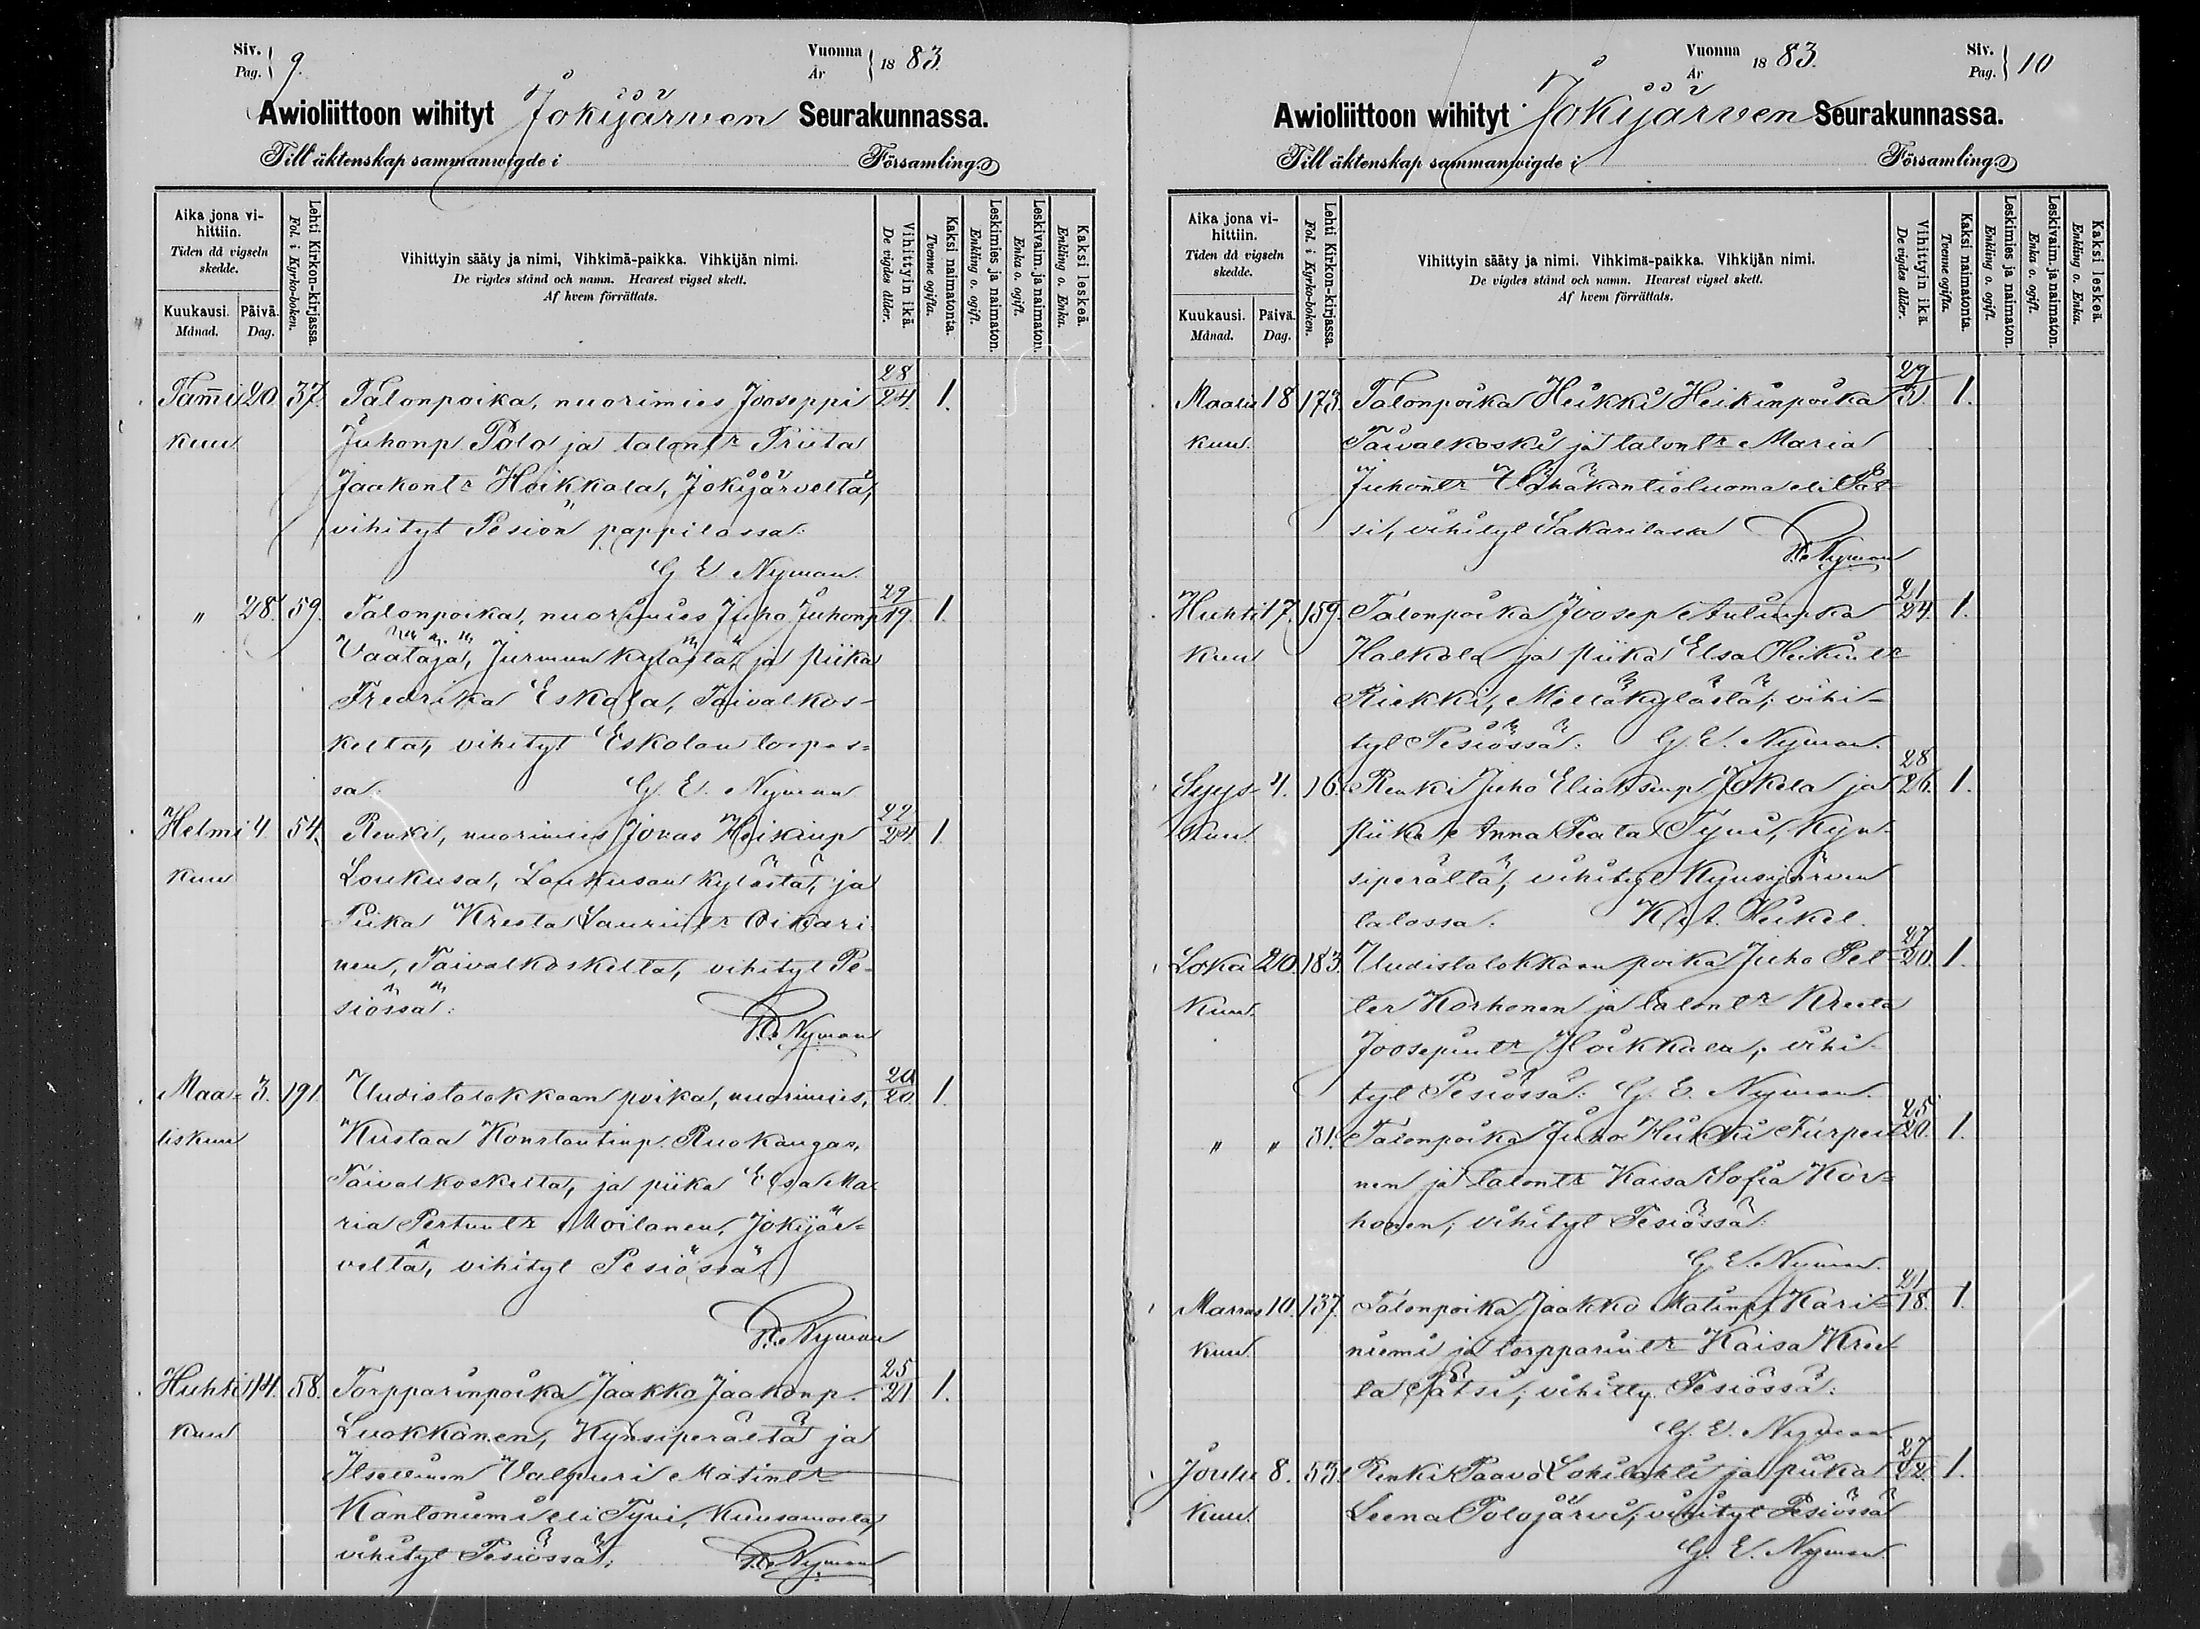 Siv. Pag. 9.
Vuonna År 1883.
Awioliittoon wihityt Jokijärven Seurakunnassa.
Till äktenskap sammanwigde i Församling.
Aika jona vihittiin.
Tiden då vigseln skedde.
Kuukausi. Månad.
Päivä. Dag.
Lehti Kirkon-kirjassa.
Fol. i Kyrko-boken.
Vihittyin sääty ja nimi, Vihkimä-paikka. Vihkijän nimi.
De vigdes stånd och namn. Hvarest vigsel skett.
Af hvem förrättats.
Vihittyin ikä.
De vigdes ålder.
Kaksi naimatonta.
Tvenne ogifta.
Leskimies ja naimaton.
Enkling o. ogift.
Leskivaim. ja naimaton.
Enka o. ogift.
Kaksi leskeä.
Enkling o. Enka.
Tammi 20 37. Talonpoika, nuorimies Jooseppi 28/24. 1.
kuu Juhonp Polo ja talontr Priita
Jaakontr Heikkala, Jokijärveltä,
vihityt Pesiön pappilassa:
G E Nyman.
" 28. 59. Talonpoika, nuorimies Juho Juhonp 29/19. 1.
Väätäjä, Jurmun kylästä, ja piika
Fredrika Eskola, Taivalkos-
kelta, vihityt Eskolan torpas-
sa: G. E. Nyman
Helmi 4. 54. Renki, nuorimies Jonas Heikinp 22/24. 1.
kuu Loukusa, Loukusan kylästä, ja
Piika Kreeta Laurintr Oikari
nen, Taivalkoskelta, vihityt Pe-
siössä:
Nyman
Maa- 3. 191. Uudistalokkaan poika, nuorimies, 20/20. 1.
liskuu Kustaa Konstantinp. Ruokangas,
Taivalkoskelta, ja piika Elsa Ma
ria Pertuntr Moilanen, Jokijär-
veltä, vihityt Pesiössä
Nyman
Huhti 14. 58. Torpparinpoika Jaakko Jaakonp. 25/21 1.
kuu Luokkanen, Kynsiperältä ja
Itsellinen Valpuri Matintr
Kantoniemi eli Tyni, Kuusamosta,
vihityt Pesiössä; Nyman
Vuonna År 1883.
Siv. Pag. 10
Awioliittoon wihityt Jokijärven Seurakunnassa.
Till äktenskap sammanwigde i Församling.
Aika jona vihittiin.
Tiden då vigseln skedde.
Kuukausi. Månad.
Päivä. Dag.
Lehti Kirkon-kirjassa.
Fol. i Kyrko-boken.
Vihittyin sääty ja nimi. Vihkimä-paikka. Vihkijän nimi.
De vigdes stånd och namn. Hvarest vigsel skett.
Af hvem förrättats.
Vihittyin ikä.
De vigdes ålder.
Kaksi naimatonta.
Tvenne ogifta.
Leskimies ja naimaton.
Enkling o. ogift.
Leskivaim. ja naimaton.
Enka o. ogift.
Kaksi leskeä.
Enkling o. Enka.
Maalis 18 173. Talonpoika Heikki Heikinpoika 29/31. 1.
kuu. Taivalkoski ja talontr Maria
Juhontr eli Pät-
si, vihityt Sakarilassa
Nyman
Huhti 17. 159. Talonpoika Joosep Antinpka 21/24. 1.
kuu Halkola ja piika Elsa Heikintr
Riekki, Metsäkylästä; vihi-
tyt Pesiössä: G. E. Nyman.
Syys- 4. 16. Renki Juho Eliaksenp Jokela ja 28/26. 1.
kuu. piika Anna Peata Tyni, Kyn-
siperältä, vihityt Kynsijärven
talossa. K. A. Heikel.
Loka 20. 183. Uudistalokkaan poika Juho Pet- 27/20. 1.
kuu. ter Korhonen ja talontr Kreeta
Joosepintr Hoikkala; vihi-
tyt Pesiössä: G. E. Nyman.
" " 31. Talonpoika Juho Heikki Turpei 25/20. 1.
nen ja talontr Kaisa Sofia Kor-
honen; vihityt Pesiössä:
G. E. Nyman.
Marras 10. 137. Talonpoika Jaakko Matinp Kari- 21/18. 1.
kuu. niemi ja torpparintr Kaisa Kree
ta Pätsi; vihitty Pesiössä:
G. E. Nyman
Joulu 8. 53. Renki Paavo Lohilahti ja piika 27/22. 1.
kuu. Leena Polojärvi; vihityt Pesiössä
G. E. Nyman.